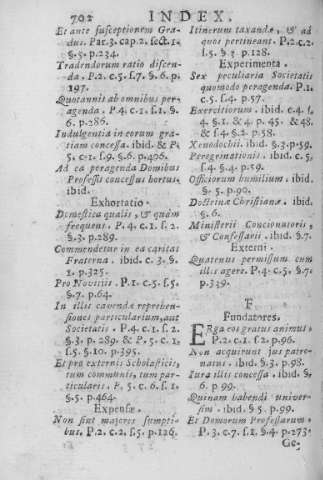 702 INDEX.
Et ante susceptionem Gra-
dus. Par.3. cap.2. sect.1.
§.5. p.234.
Tradendorum ratio discen-
da. P.2. c.5. s.7. §.6. p.
197.
Quotannis ab omnibus per-
agenda. P.4. c.1. s.1. §.
6. p.286.
Indulgentia in eorum gra-
tiam concessa. ibid. & P.
5. c.1. s.9. §.6. p.406.
Ad ea peragenda Domibus
Professis concessus hortus.
ibid.
Exhortatio.
Domestica qualis, & quàm
frequens. P.4. c.1. s.2.
§.3. p.289.
Commendetur in ea caritas
Fraterna. ibid. c.3. §.
1. p.325.
Pro Novitiis. P.1. c.5. s.5.
§.7. p.64.
In illis cavendæ reprehen-
siones particularium, aut
Societatis. P.4. c.1. s.2.
§.3. p.289. & P.5. c.1.
s.5. §.10. p.395.
Et pro externis Scholasticis,
tum communis, tum par-
ticularis. P.5. c.6. s.1.
§.5. p.464.
Expensæ.
Non sint majores sumpti-
bus. P.2. c.2. s.5. p.126.
Itinerum taxandæ, & ad
quos pertineant. P.2.c.2.
s.5. §. p.128.
Experimenta.
Sex peculiaria Societatis
quomodo peragenda. P.1.
c.5. s.4. p.57.
Exercitiorum. ibid. c.4. s.
4. §.1. & 4. p.45. & 48.
& s.4 §.2. p.58.
Xenodochii. ibid. §.3.p.59.
Peregrinationis. ibid. c.5.
s.4. §.4. p.59.
Officiorum humilium. ibid.
§.5. p.90.
Doctrinæ Christianæ. ibid.
§.6.
Ministerii Concionatoris,
& Confessarii. ibid. §.7.
Externi.
Quatenus permissum cum
illis agere. P.4. c.5. §.7.
p.339.
F.
Fundatores.
ERga eos gratus animus.
P.2. c.1. s.2. p.96.
Non acquirunt jus patro-
natus. ibid. §.3. p.98.
Jura illis concessa. ibid. §.
6. p.99.
Quinam habendi univer-
sim. ibid §.5. p.99.
Et Domorum Professarum.
P.3. c.7. s.1. §.4. p.273.
Ge-